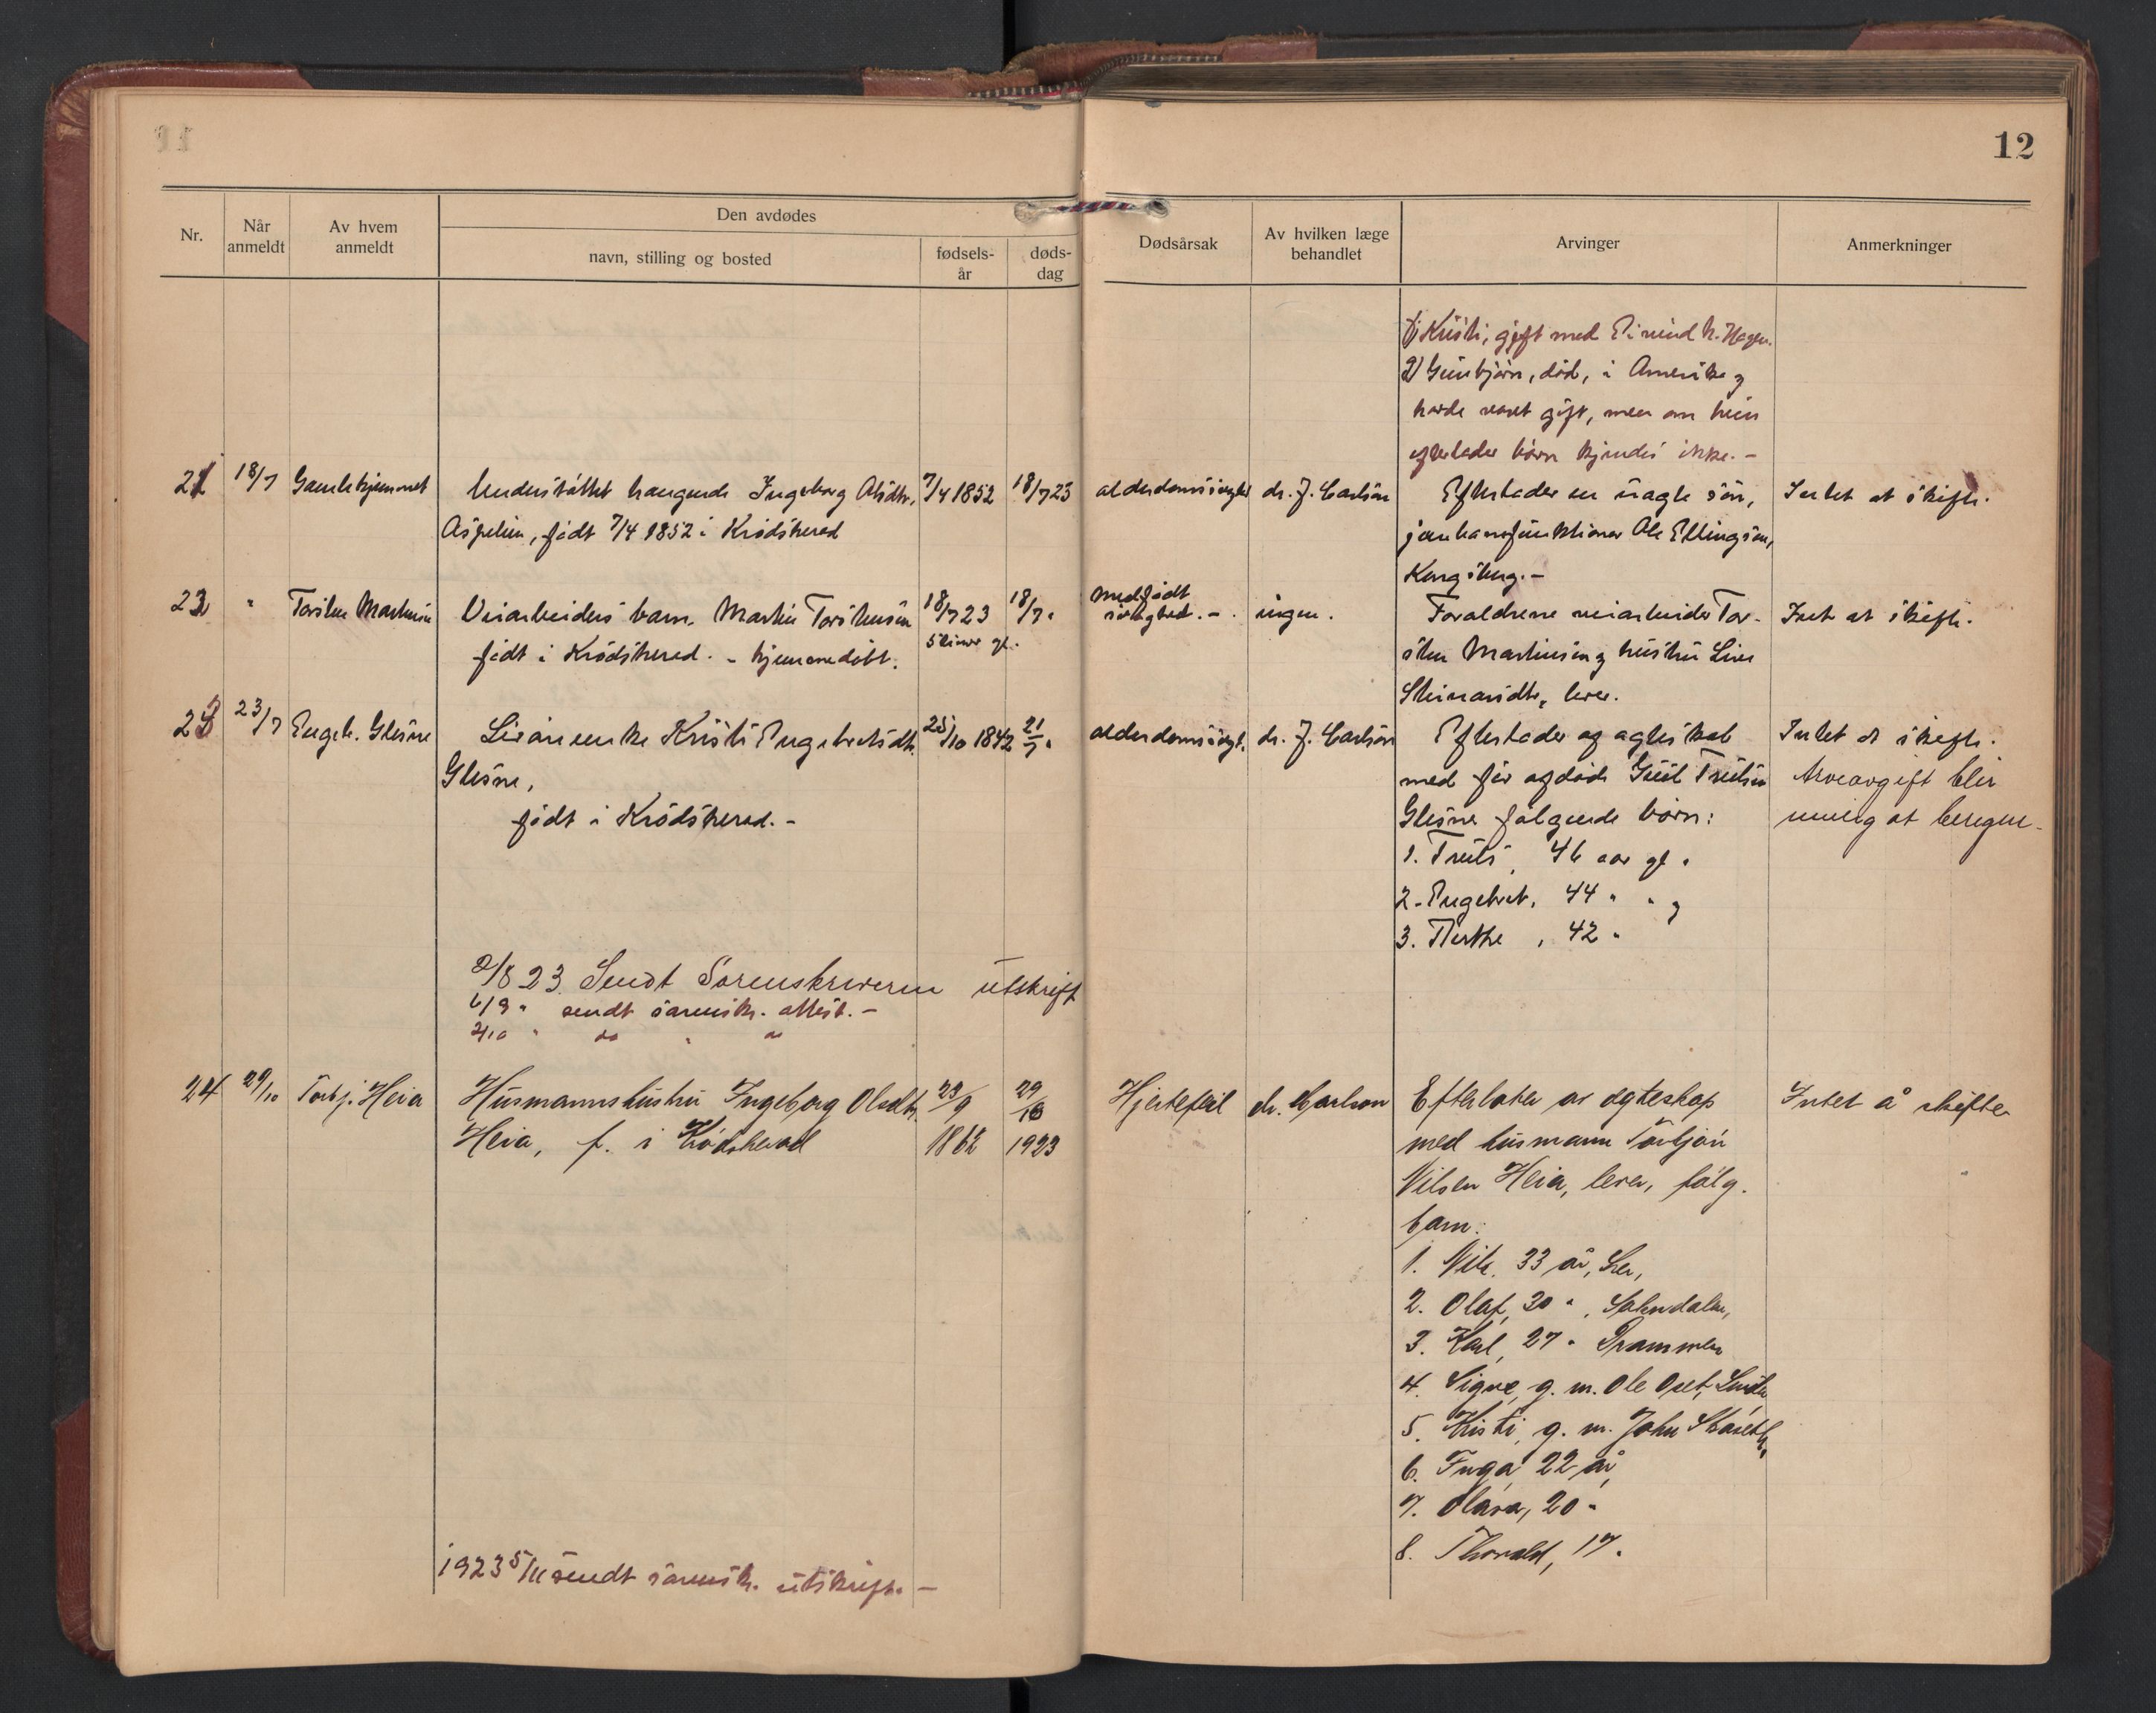 11
12
Nr.
Når anmeldt
Av hvem anmeldt
Den avdødes
navn, stilling og bosted
fødsels-år
døds-dag
Dødsårsak
Av hvilken læge behandlet
Arvinger
Anmerkninger
1) Kristi, gift med Eivind N. Hagen.
2) Gunbjørn, død, i Amerika og
havde været gift, men om hun
efterlader børn kjendes ikke. -
21 18/7 Gamlehjemmet Understøttet trængende Ingeborg Olsdtr. 7/4 1852 18/7 23 alderdomssvaghet dr. J. Carlson Efterlader en uægte søn, Intet at skifte.
Aspelien, født 7/4 1852 i Krødsherad jernbanefunktionær Ole Ellingsen,
Kongsberg. -
22 " Torsten Martinsen Veiarbeiders barn, Martin Torstensen 18/7 23 18/7 " medfødt svaghed. - ingen. Forældrene veiarbeider Tor- Intet at skifte.
5 timer gl.
født i Krødsherad. - hjemmedøbt. sten Martinsen og hustru Live
Steinarsdtr, lever.
23 23/7 Engebr. Glesne Livørenke Kristi Engebretsdtr. 25/10 1842 21/7 " alderdomssvagh. dr. J. Carlson Efterlader af ægteskab Intet at skifte.
Glesne, med før afdøde Guul Trulsen Arveavgift blir
født i Krødsherad. - Glesne følgende børn: umulig at beregne.
1. Truls, 46 aar gl.
2. Engebret, 44 " " og
3. Berthe, 42 "
2/8 23. Sendt Sorenskriveren utskrift
6/9 " sendt sorenskr. attest. -
2/10 " do " "
24 29/10 Torbj. Heia Husmannshustru Ingeborg Olsdtr. 23/9 29/10 Hjertefeil dr. Carlson Efterlater av egteskap Intet å skifte
Heia, f. i Krødsherad 1862 1923 med husmann Torbjørn
Nilsen Heia, lever, følg.
barn:
1. Nils, 33 år, Lier,
2. Olaf, 30 ", Solumdalen,
3. Karl, 27 " Drammen
4. Signe, g. m. Ole Opet,
5. Kristi, g. m. John
6. Inga 22 år,
7. Olava, 20 "
8. Thorvald, 17 "
1923 5/11 sendt sorenskr. utskrift. -